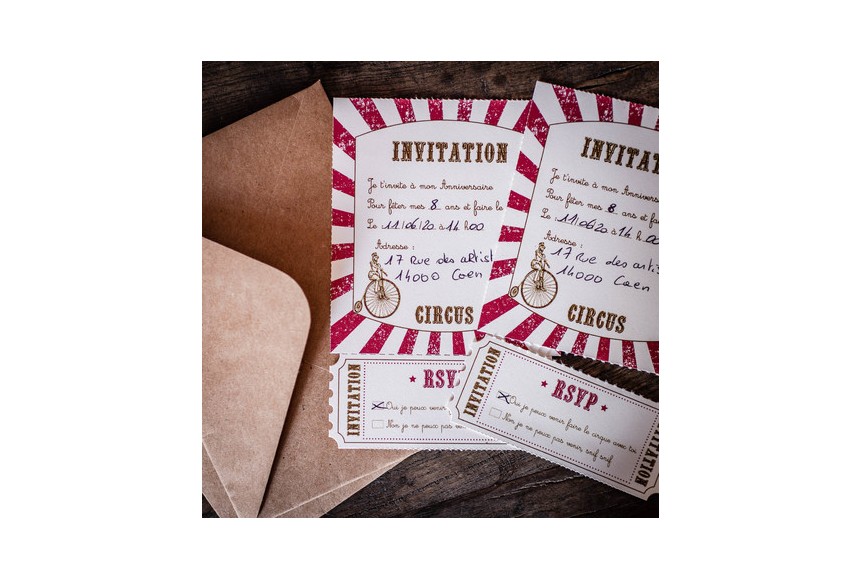 INVITATION
Je t'invite à mon Anniversaire
Pour fêter mes 8 ans et faire le
Le : 11/06/20 à 14 h 00
Adresse :
17 Rue des artist
14000 Caen
CIRCUS
INVITATION
RSVP
Oui je peux venir
Non je ne peux pas
INVITAT
Je t'invite à mon Anniversa
Pour fêter mes 8 ans et fai
Le : 11/06/20 à 14 h 00
Adresse :
17 Rue des arti
14000 Caen
CIRCUS
INVITATION
RSVP
Oui je peux venir faire le cirque avec toi
Non je ne peux pas venir snif snif
INVITATION